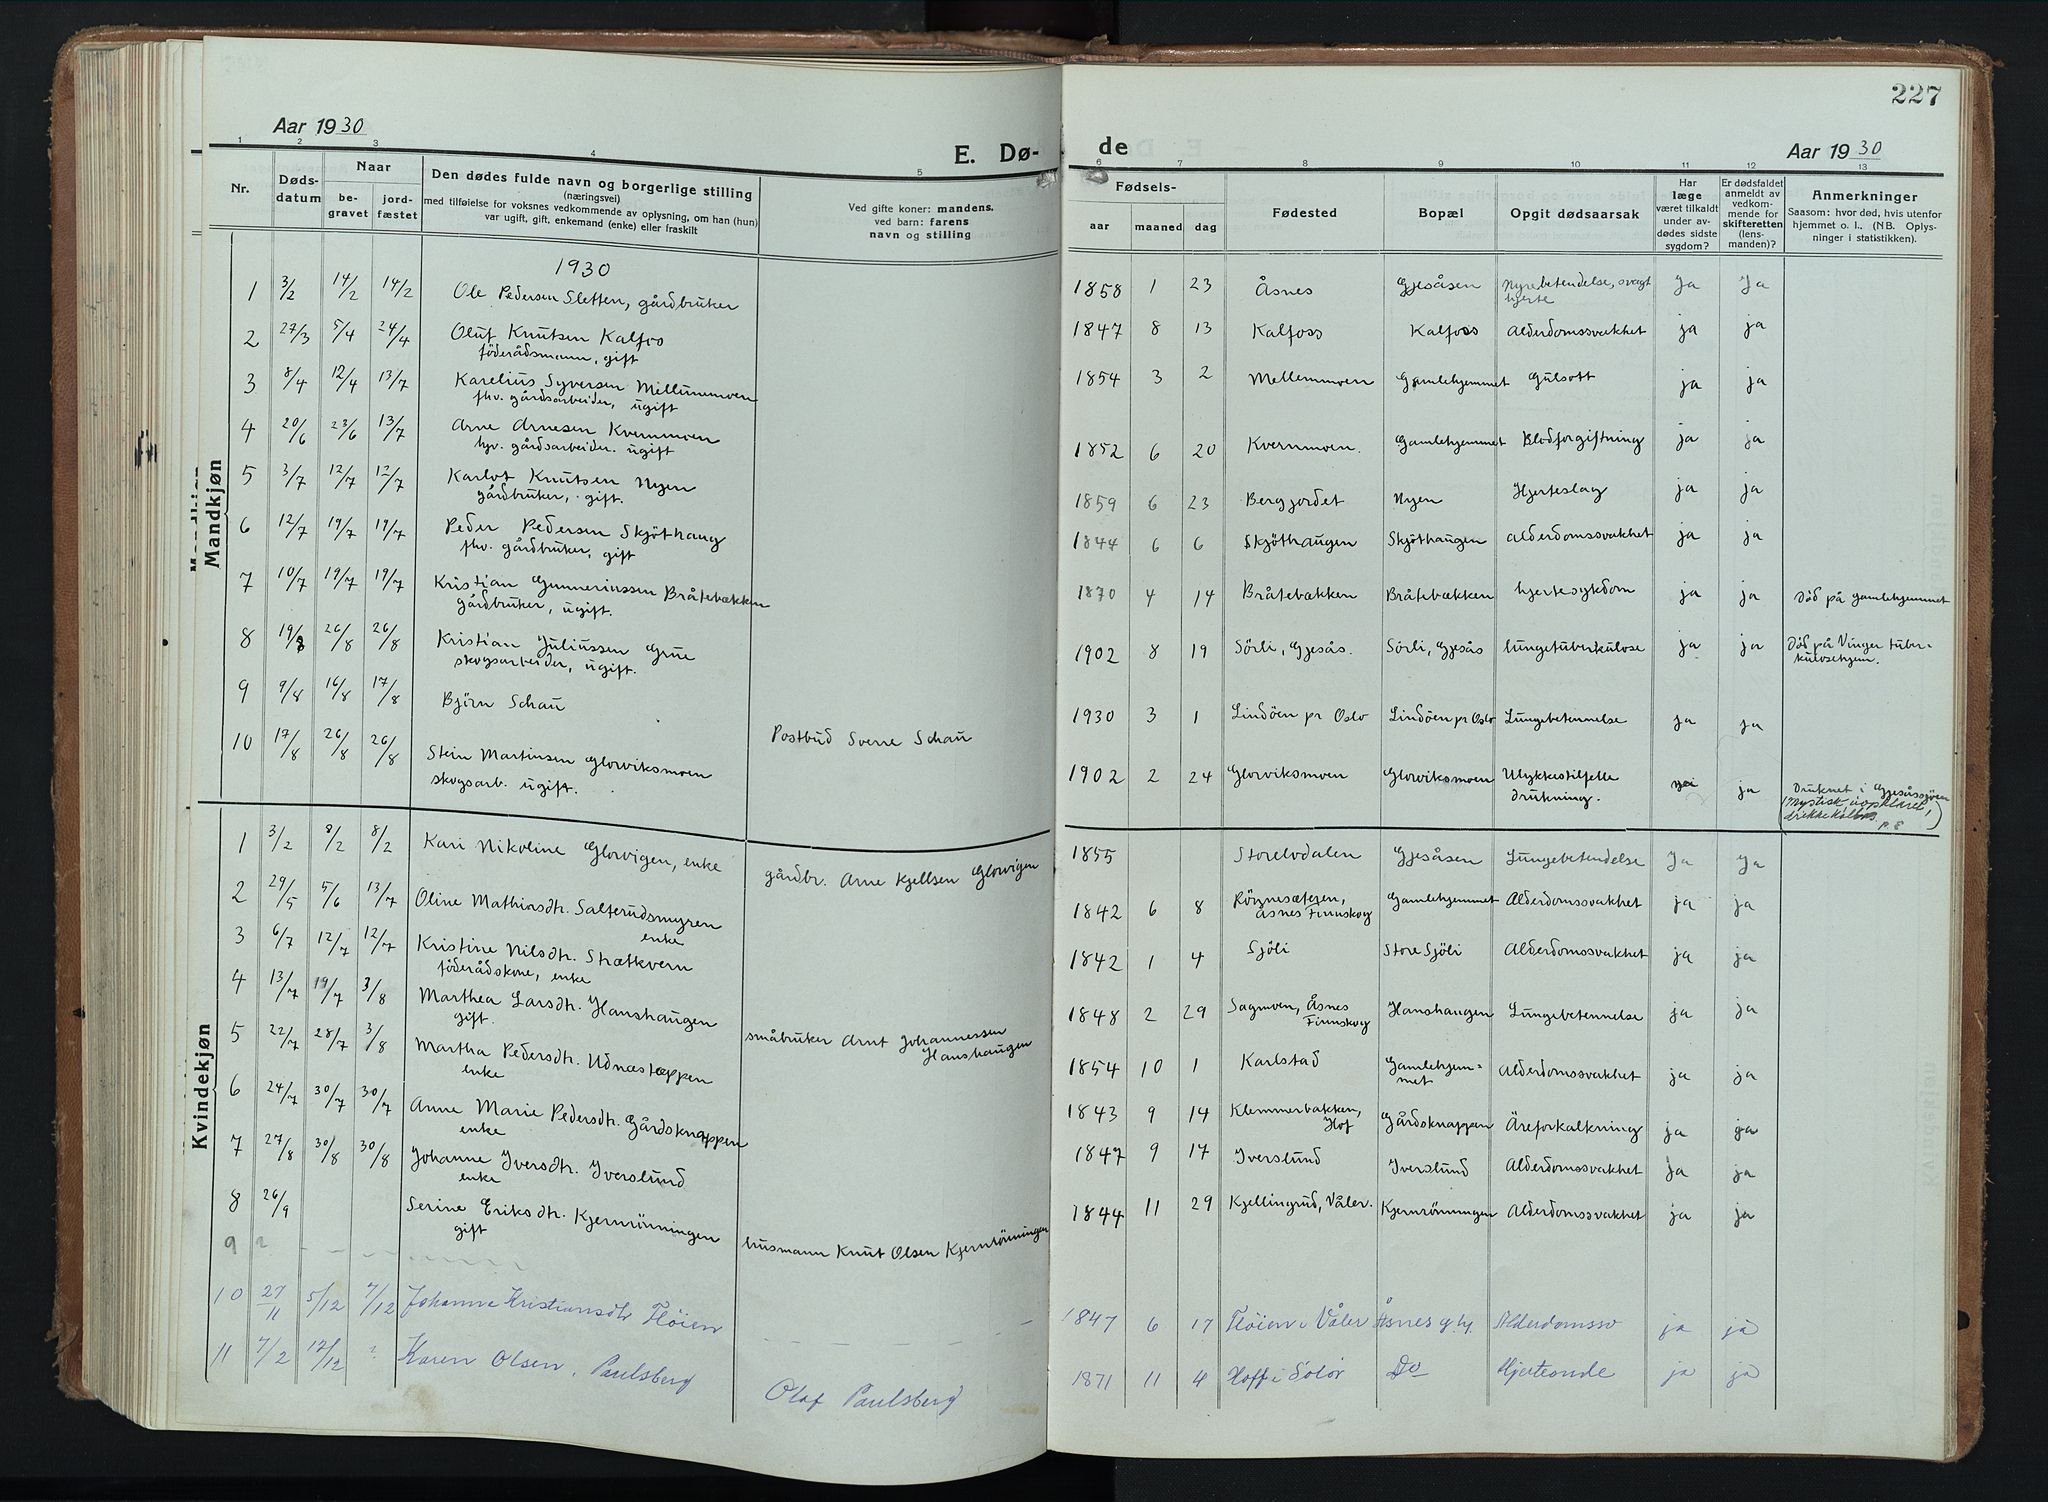 227
Aar 1930
E. Dø-
de
Aar 1930
1 2 3 4 5 6 7 8 9 10 11 12 13
Nr.
Døds-
datum
Naar
be-
gravet
jord-
fæstet
Den dødes fulde navn og borgerlige stilling
(næringsvei)
med tilføielse for voksnes vedkommende av oplysning, om han (hun)
var ugift, gift, enkemand (enke) eller fraskilt
Ved gifte koner: mandens.
ved barn: farens
navn og stilling
Fødsels-
aar maaned dag
Fødested
Bopæl
Opgit dødsaarsak
Har
læge
været tilkaldt
under av-
dødes sidste
sygdom?
Er dødsfaldet
anmeldt av
vedkom-
mende for
skifteretten
(lens-
manden)?
Anmerkninger
Saasom: hvor død, hvis utenfor
hjemmet o. l.. (NB. Oplys-
ninger i statistikken).
Mandkjøn
1930
1 3/2 14/2 14/2 Ole Pedersen Sletten, gårdbruker 1858 1 23 Åsnes Gjesåsen Nyrebetendelse, svagt Ja Ja
hjerte
2 27/3 5/4 24/4 Oluf Knutsen Kalfoss 1847 8 13 Kalfoss Kalfoss Alderdomssvakhet ja ja
föderådsmann, gift
3 8/4 12/4 13/7 Karelius Syversen Millummoen 1854 3 2 Mellemmoen Gamlehjemmet Gulsott ja ja
fhv. gårdsarbeider, ugift
4 20/6 23/6 13/7 Arne Arnesen Kvernmoen 1852 6 20 Kvernmoen. Gamlehjemmet Blodforgiftning ja ja
hv. gårdsarbeider. ugift
5 3/7 12/7 12/7 Karlot Knutsen Nyen 1859 6 23 Bergjordet Nyen Hjerteslag ja ja
gårdbruker, gift.
6 12/7 19/7 19/7 Peder Pedersen Skjöthaug 1844 6 6 Skjöthaugen Skjöthaugen Alderdomssvakhet ja ja
fhv. gårdbruker, gift
7 10/7 19/7 19/7 Kristian Gunneriussen Bråtebækken 1870 4 14 Bråtebækken Bråtebækken hjertesykdom ja ja Död på gamlehjemmet
gårdbruker, ugift.
8 19/8 26/8 26/8 Kristian Juliussen Grue 1902 8 19 Sörli, Gjesås. Sörli, Gjesås lungetuberkulose ja ja Död på Vinger tuber-
skogsarbeider, ugift. kulosehjem.
9 9/8 16/8 17/8 Björn Schau Postbud Sverre Schau 1930 3 1 Lindöen pr Oslo Lindöen pr Oslo Lungebetennelse ja ja
10 17/8 26/8 26/8 Stein Martinsen Glorviksmoen 1902 2 24 Glorviksmoen Glorviksmoen Ulykkestilfelle nei ja Druknet i Gjesåssjöen
skogsarb. ugift. drukning. (Mystisk, uopklaret,
Kvindekjøn
1 3/2 8/2 8/2 Kari Nikoline Glorvigen, enke gårdbr. Arne Kjellsen Glorvigen 1855 Storelvdalen Gjesåsen Lungebetendelse Ja Ja
2 29/5 5/6 13/7 Oline Mathiasdtr. Salterudsmyren 1842 6 8 Rögnesæteren, Gamlehjemmet Alderdomssvakhet ja ja
enke Åsnes Finnskog
3 6/7 12/7 12/7 Kristine Nilsdtr. Strætkvern 1842 1 4 Sjöli Store Sjöli Alderdomssvakhet ja ja
föderådskone, enke
4 13/7 19/7 3/8 Marthea Larsdtr. Hanshaugen småbruker Arnt Johannessen 1848 2 29 Sagmoen, Åsnes Hanshaugen Lungebetennelse ja ja
gift. Hanshaugen Finnskog
5 22/7 28/7 3/8 Martha Pedersdtr. Udnæstæppen 1854 10 1 Karlstad Gamlehjem- Alderdomssvakhet ja ja
enke met
6 24/7 30/7 30/7 Anne Marie Pedersdtr. Gårdsknappen 1843 9 14 Klemmerbakken, Gårdsknappen Åreforkalkning ja ja
enke Hof
7 27/8 30/8 30/8 Johanne Iversdtr. Iverslund 1847 9 17 Iverslund Iverslund Alderdomssvakhet ja ja
enke
8 26/9 Serine Eriksdtr. Kjernrönningen husmann Knut Olsen Kjernrönningen 1844 11 29 Kjellingrud, Våler. Kjernrönningen Alderdomssvakhet ja ja
gift
9 ?
10 27/11 5/12 7/12 Johanna Kristiansdtr Fløien 1847 6 17 Fløien i Våler Åsnes g.hj. Alderdomssv ja ja
11 7/2 12/12 ? Karen Olsen, Paulsberg Olaf Paulsberg 1871 11 4 Hoff i Solør Do Hjerteonde ja ja